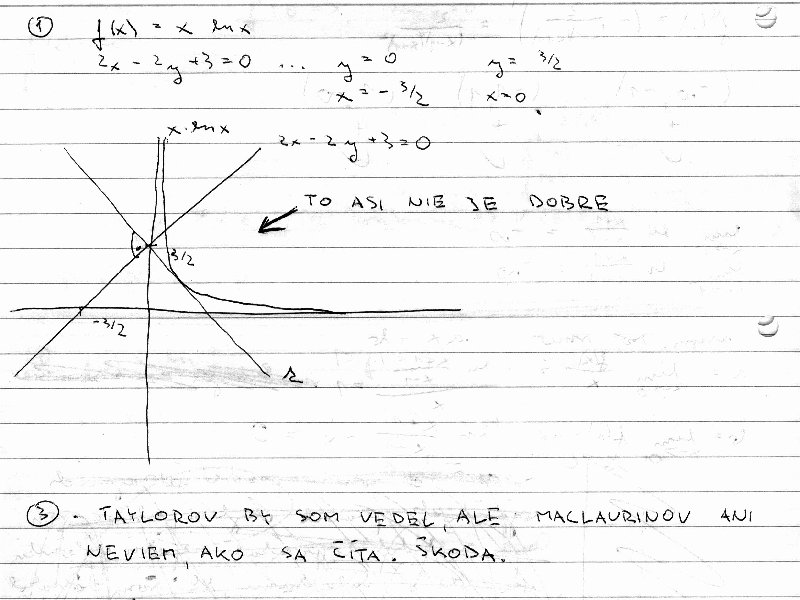 ① f(x) = x lnx
2x - 2y + 3 = 0 ... y = 0 y = 3/2
x = - 3/2 x = 0
x · lnx
2x - 2y + 3 = 0
TO ASI NIE JE DOBRE
3/2
-3/2
③ - TAYLOROV BY SOM VEDEL, ALE MACLAURINOV ANI
NEVIEM, AKO SA ČÍTA. ŠKODA.